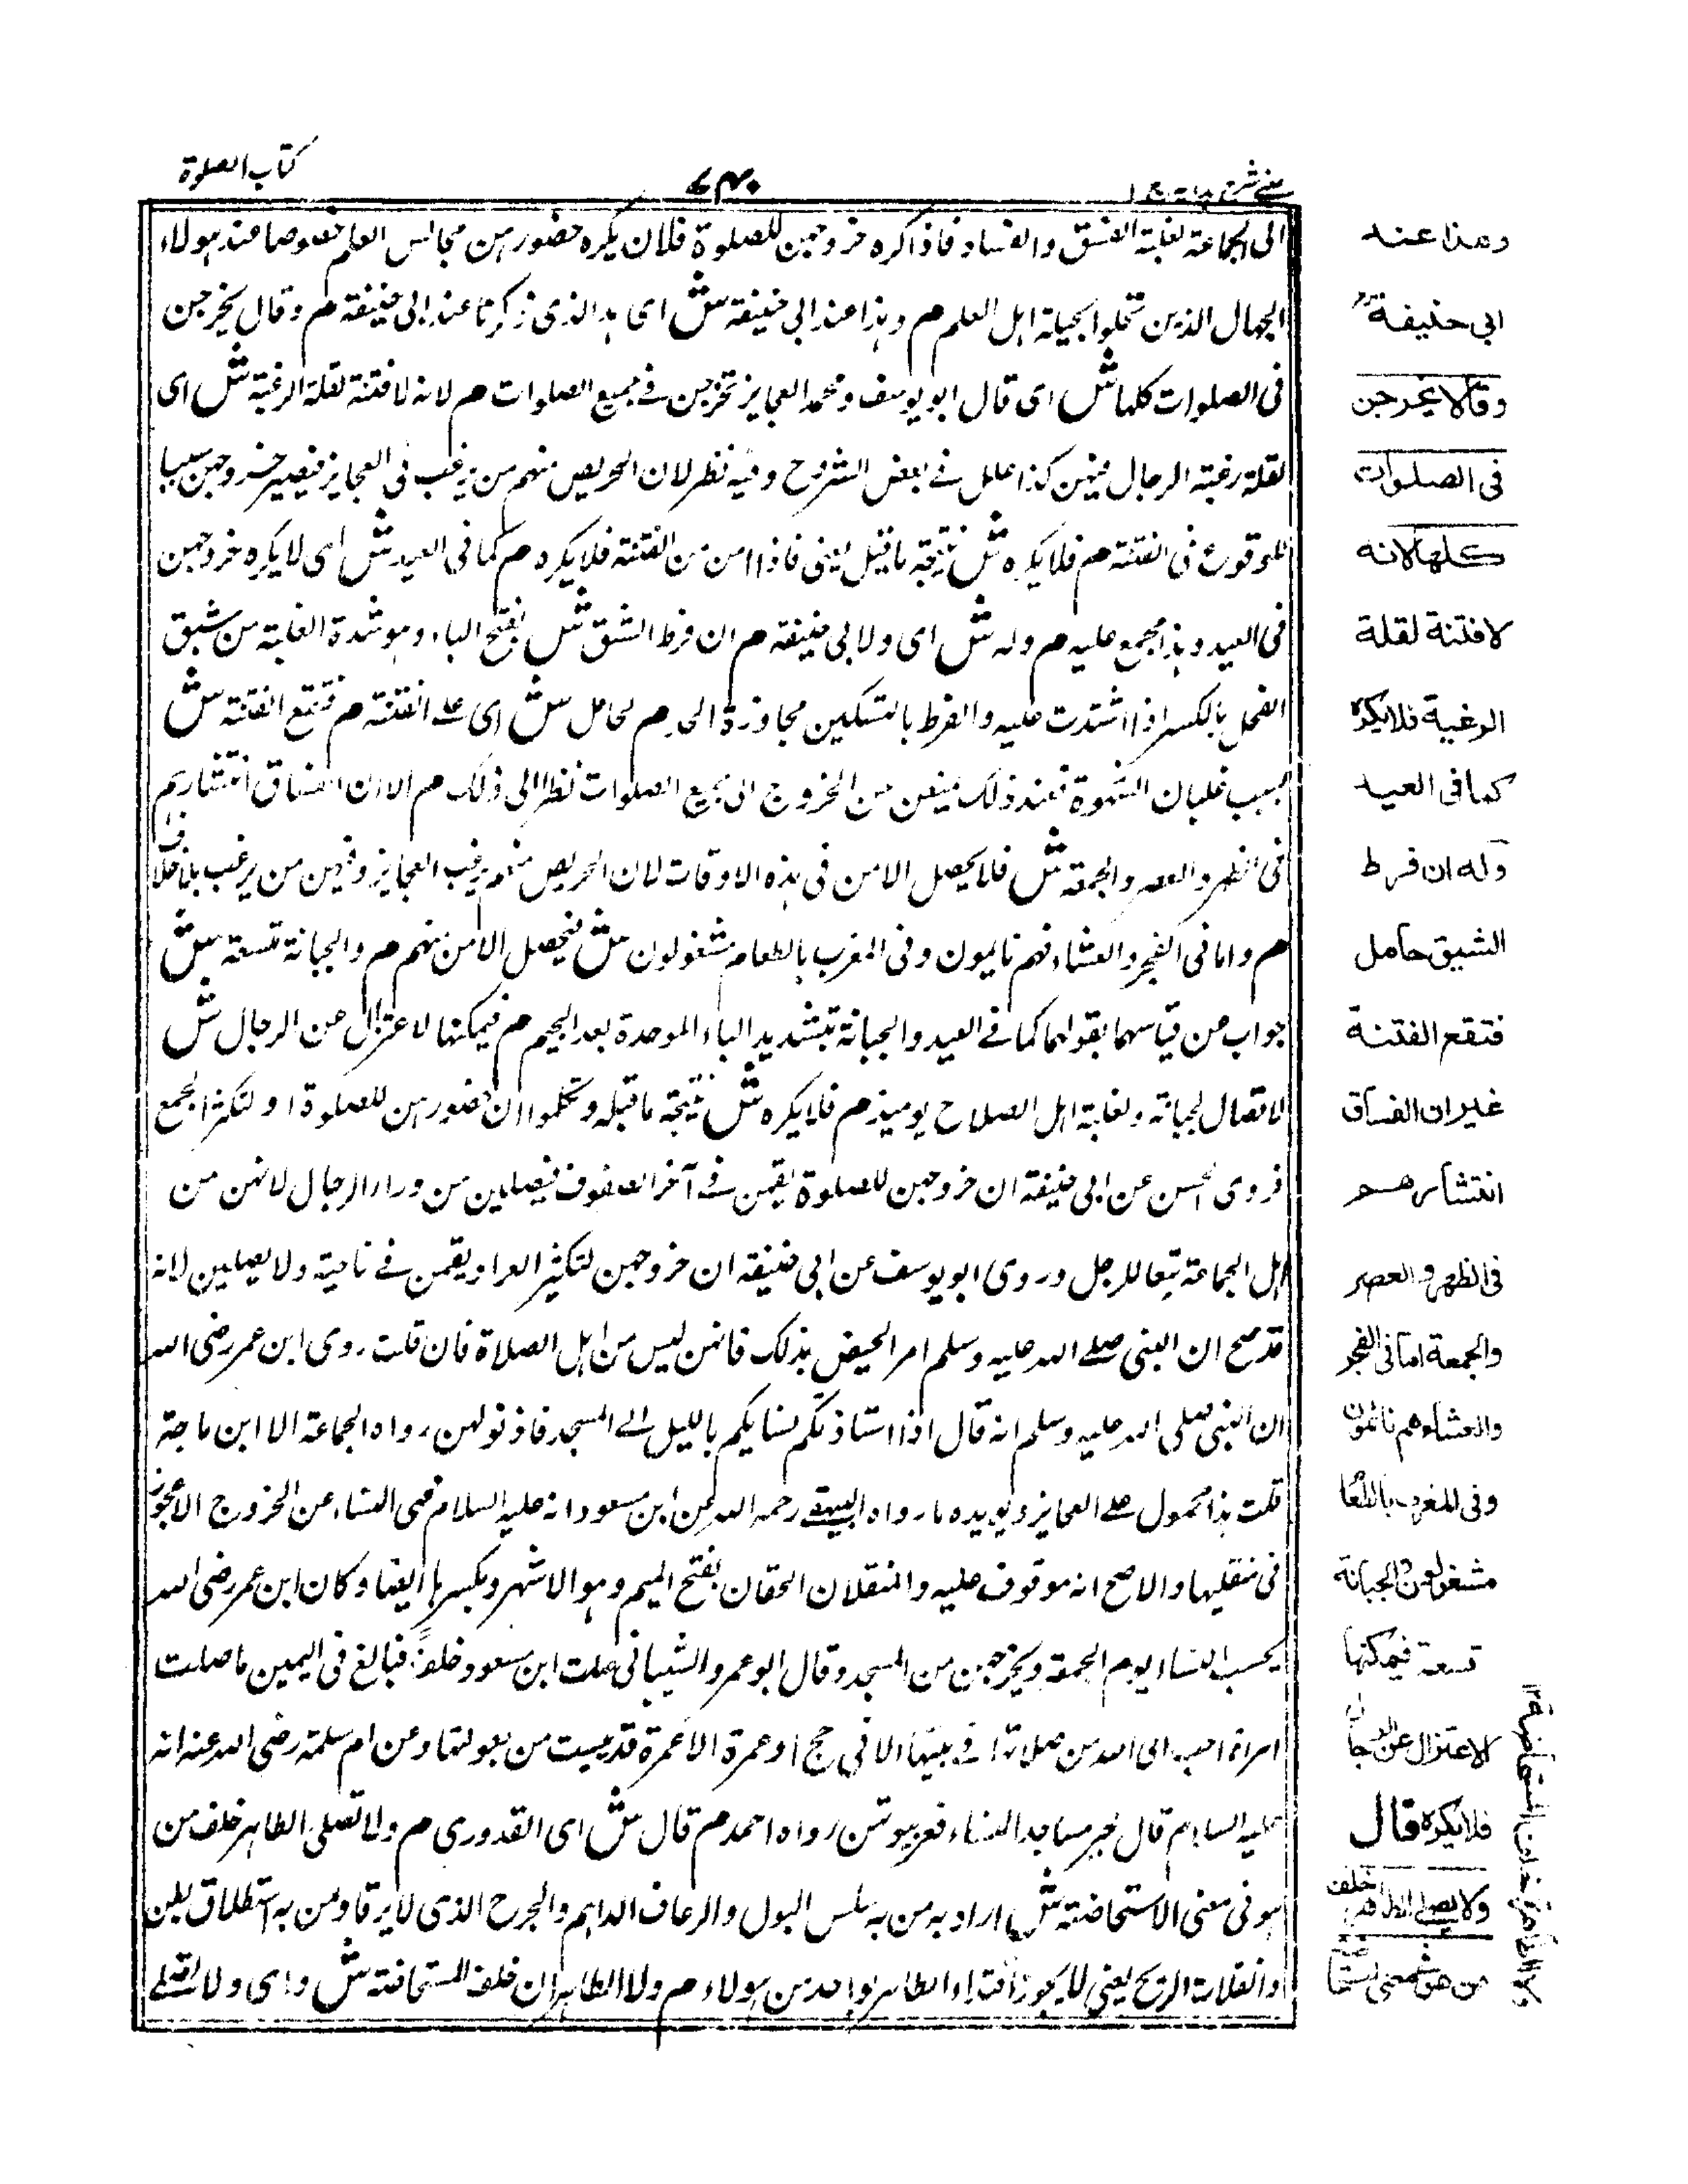 كتاب الصلوة
٧٤٠
عيني شرح هداية ج ١
الى الجماعة لغلبة الفسق والفساد فاذا كره خروجهن للصلوة فلان يكره حضورهن مجالس العلم خصوصا عند هولاء
الجهال الذين تحلوا بحلية اهل العلم م وهذا عند ابي حنيفة ش اى هذا الذى ذكرنا عند ابى حنيفة م وقال يخرجن
فى الصلوات كلها ش اى قال ابو يوسف ومحمد العجايز تخرجن فے جميع الصلوات م لانه لا فتنة لقلة الرغبة ش اى
لقلة رغبة الرجال فيهن كذا علل فے بعض الشروح وفيه نظر لان الحريص منهم من يرغب فى العجايز فيصير خروجهن سببا
للوقوع فى الفتنة م فلا يكره ش نتيجة ما قبل يعنى فاذا امن من الفتنة فلا يكره م كما فى العيد ش اى لا يكره خروجهن
فى العيد وهذا مجمع عليه م وله ش اى ولابى حنيفة م ان فرط الشبق ش بفتح الباء وهو شدة الغلبة من شبق
الفحل بالكسر اذا اشتدت عليه والفرط بالتسكين مجاوزة الحد م حامل ش اى على الفتنة م فتقع الفتنة ش
بسبب غلبان الشهوة فعند ذلك يمنعن من الخروج الى جميع الصلوات نظرا الى ذلك م الا ان الفساق انتشارهم
فى الظهر والعصر والجمعة ش فلا يحصل الامن فى هذه الاوقات لان الحريص منهم يرغب العجايز وفيهن من يرغب
م واما فى الفجر والعشاء فهم نايمون وفى المغرب بالطعام مشغولون ش فيحصل الامن منهم م والجبانة متسعة ش
جواب عن قياسهما بقولهما كما فے العيد والجبانة بتشديد الباء الموحدة بعد الجيم م فيمكنها لاعتزال عن الرجال ش
لاتصال لجبانة ولغلبة اهل الصلاح يوميذ م فلا يكره ش نتيجة ما قبله وتكلموا ان حضورهن للصلوة او لتكثر الجمع
فروى الحسن عن ابى حنيفة ان خروجهن للصلوة يقمن فے آخر الصفوف فيصلين من وراء الرجال لانهن من
اهل الجماعة تبعا للرجل وروى ابو يوسف عن ابى حنيفة ان خروجهن لتكثير السواد يقمن فے ناحية ولا يصلين لانه
قد صح ان النبى صلے الله عليه وسلم امر الحيض بذلك فانهن ليس من اهل الصلاة فان قلت روى ابن عمر رضى الله
ان النبى صلى الله عليه وسلم انه قال اذا استاذنكم نسايكم بالليل الے المسجد فاذنولهن رواه الجماعة الا ابن ماجة
قلت هذا محمول علے العجايز ويويده ما رواه البيهقے رحمه الله عن ابن مسعود انه عليه السلام نهى النساء عن الخروج الا عجوز
فى منقليها والاصح انه موقوف عليه والمنقلان الخفان بفتح الميم وهو الاشهر وبكسرها ايضا وكان ابن عمر رضى الله
يحسب النساء يوم الجمعة ويخرجهن من المسجد وقال ابو عمرو الشيبانى ابن مسعود حلف فبالغ فى اليمين ما صلت
امراة احب الى الله من صلاتها فے بيتها الا فى حج او عمرة الا عمرة قد يست من بعولتها وعن ام سلمة رضى الله عنه انه
عليه السلام قال خير مساجد النساء قعر بيوتهن رواه احمد م قال ش اى القدورى م ولا تصلى الطاهر خلف من
هو فى معنى الاستحاضة ش اراد به من به سلس البول والرعاف الدايم والجرح الذى لا يرقا ومن به استطلاق بطن
وانفلات الريح يعنى لا يجوز اقتداء الطاهر بواحد من هولاء م ولا الطاهران خلف المستحاضة ش واى ولا تصلے
وهذا عند
ابي حنيفة
وقالا يخرجن
فى الصلوات
كلها لانه
لا فتنة لقلة
الرغبة فلا يكره
كما فى العيد
وله ان فرط
الشبق حامل
فتقع الفتنة
غير ان الفساق
انتشارهم
فى الظهر والعصر
والجمعة اما فى الفجر
والعشاء هم نائمون
وفى المغرب بالطعا
مشغولون والجبانة
تسعة فيمكنها
الاعتزال عن الرجال
فلا يكره قال
ولا يصلى الطاهر خلف
من هو فى معنى المستحا